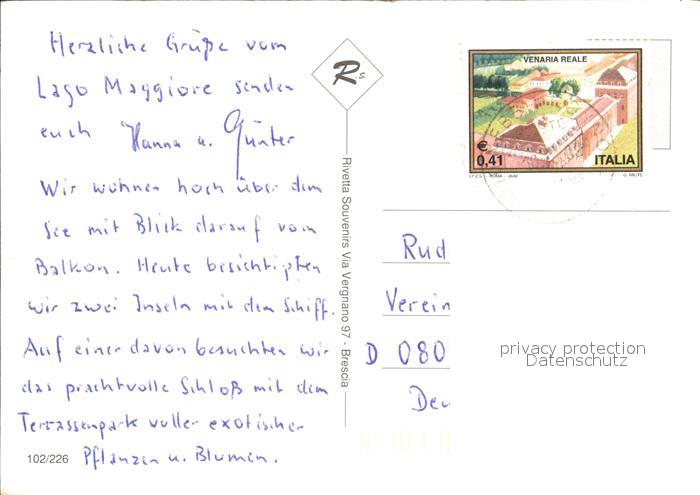 Herzliche Grüße vom
Lago Maggiore senden
euch Hanna u. Günter
Wir wohnen hoch über dem
See mit Blick darauf vom
Balkon. Heute besichtigten
wir zwei Inseln mit dem Schiff.
Auf einer davon besuchten wir
das prachtvolle Schloß mit dem
Terrassenpark voller exotischer
Pflanzen u. Blumen.
102/226
Rs.
Rivetta Souvenirs Via Vergnano 97 - Brescia
VENARIA REALE
€
0,41
ITALIA
I.P.Z.S. - ROMA - 2002
Rud
Verein
D 080
Deu
privacy protection
Datenschutz